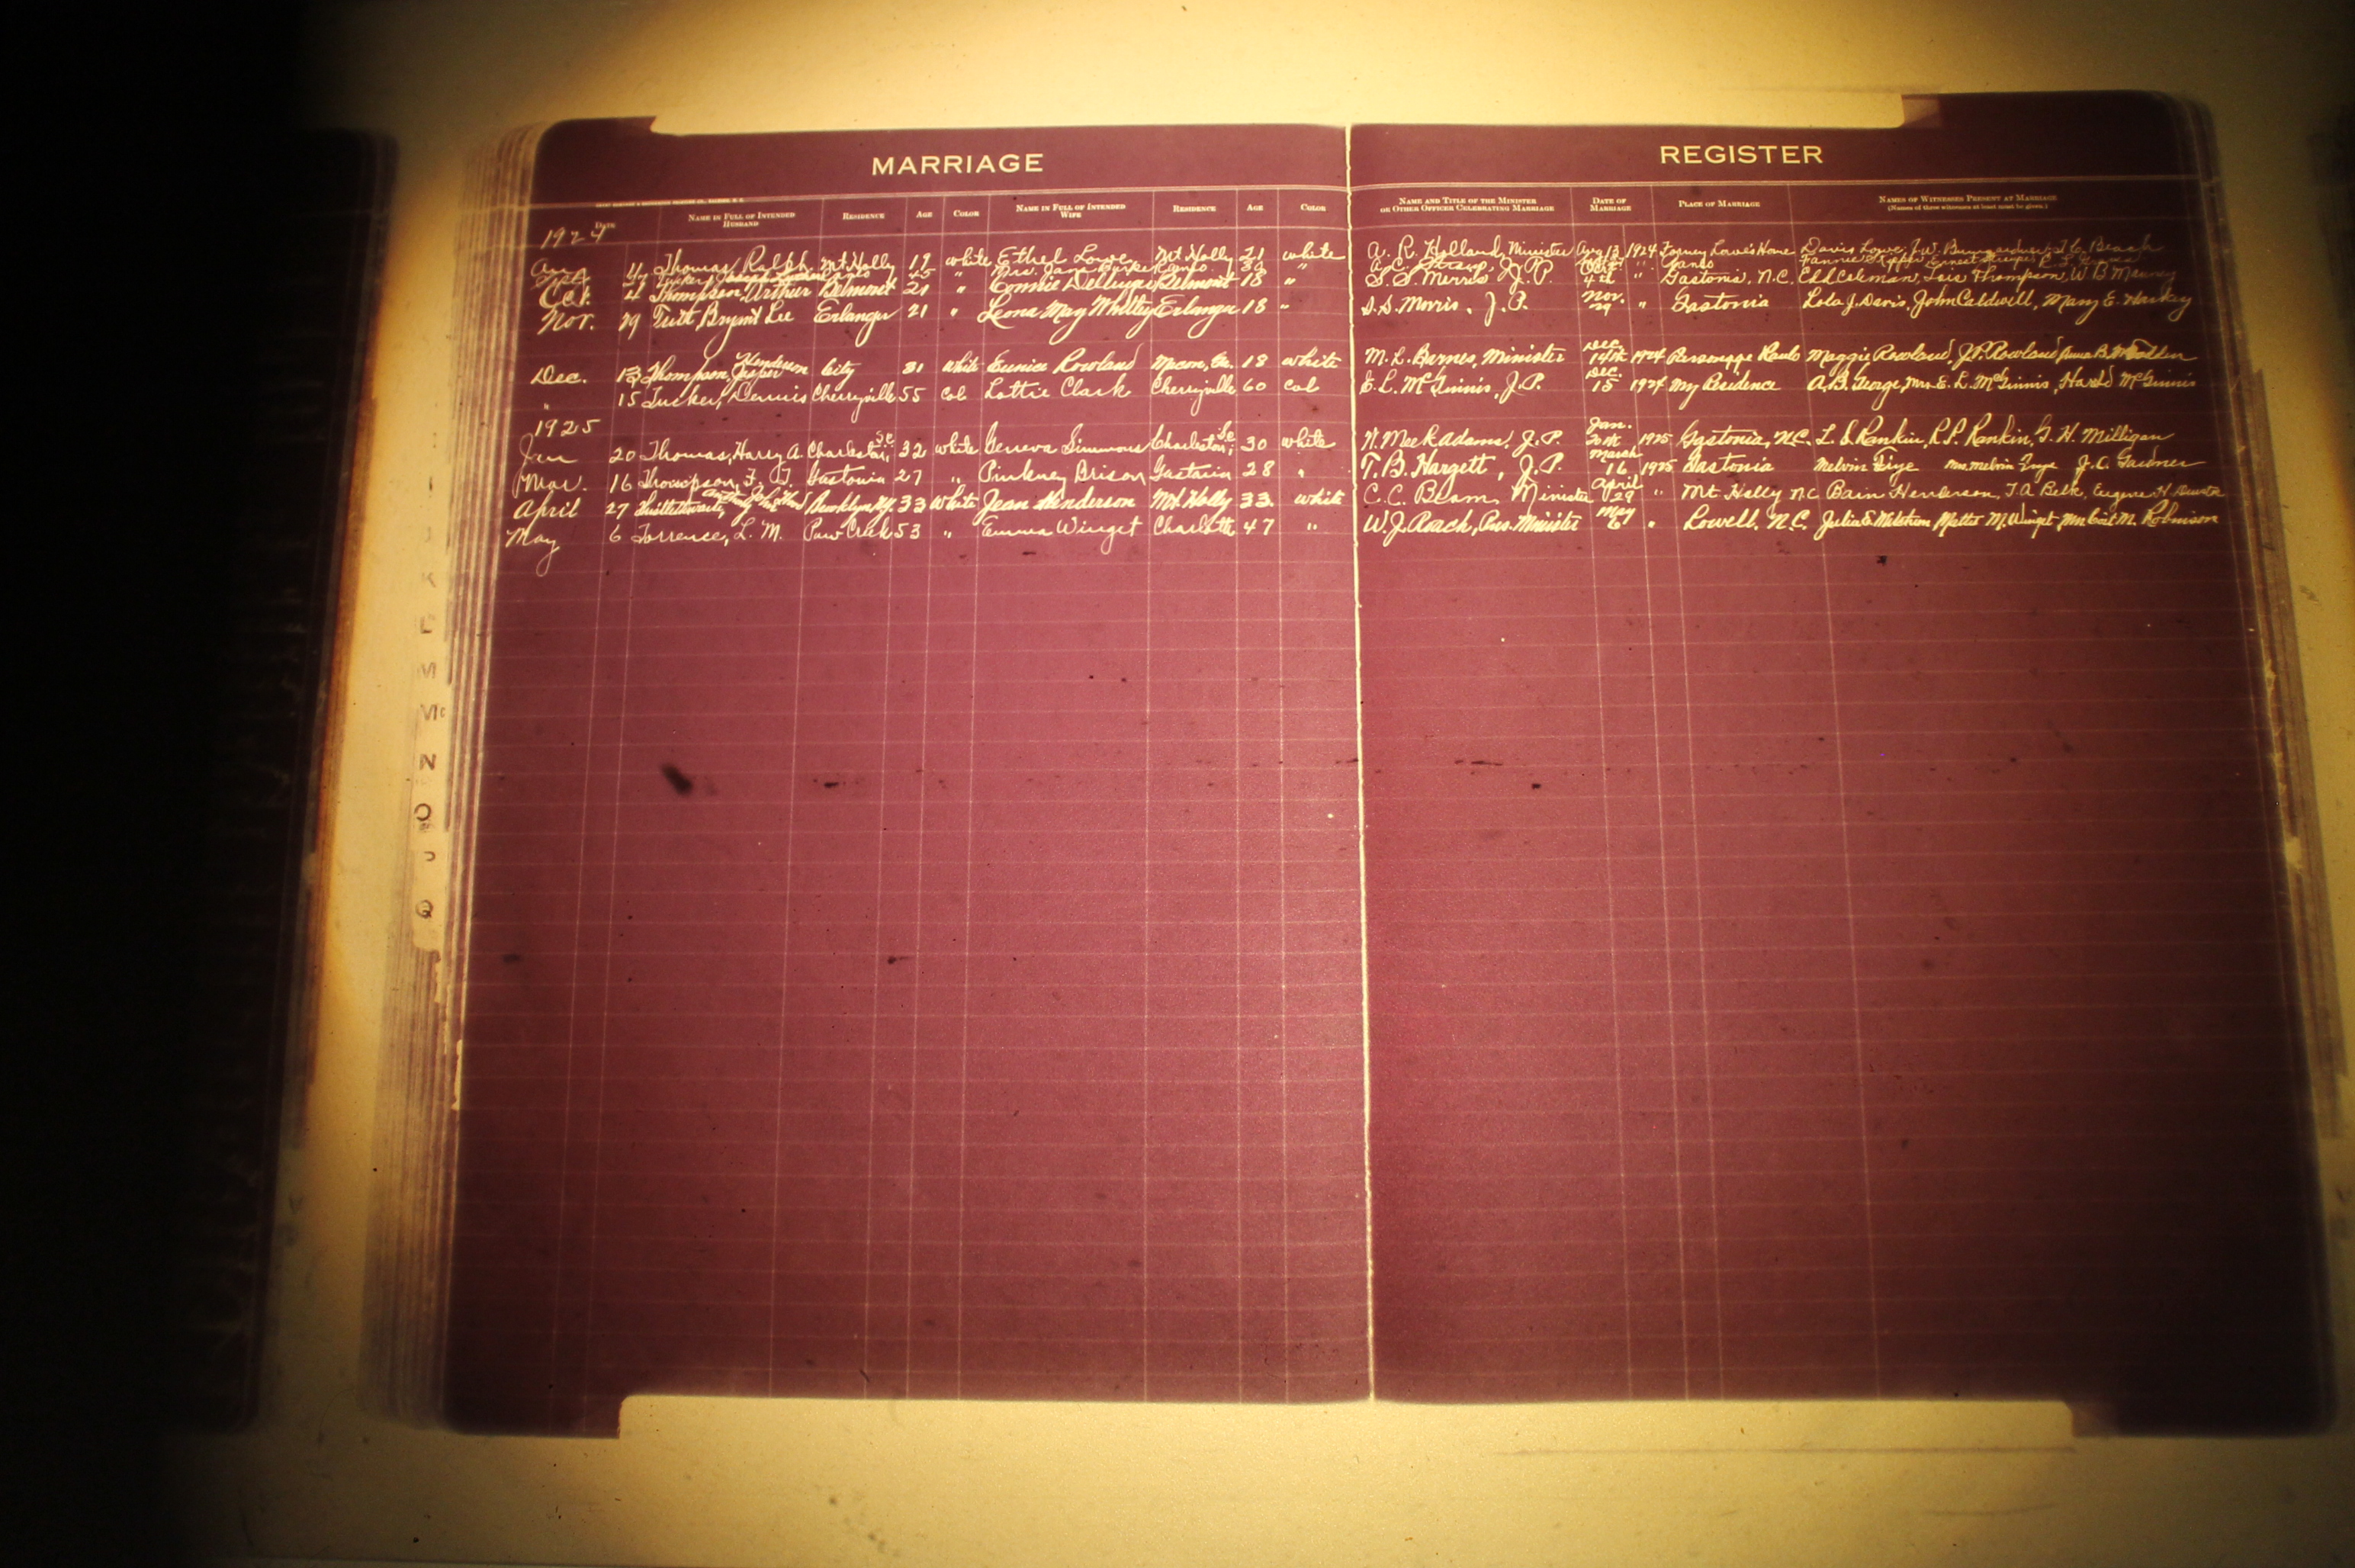 MARRIAGE REGISTER
DATE NAME IN FULL OF INTENDED HUSBAND RESIDENCE AGE COLOR NAME IN FULL OF INTENDED WIFE RESIDENCE AGE COLOR NAME AND TITLE OF THE MINISTER OR OTHER OFFICER CELEBRATING MARRIAGE DATE OF MARRIAGE PLACE OF MARRIAGE NAMES OF WITNESSES PRESENT AT MARRIAGE (Names of three witnesses at least must be given.)
1924
Thomas, Ralph Mt Holly 19 white Ethel Lowe Mt Holly 21 white A. R. Holland, Minister Aug 13 1924 Forney Lowe's Home Davis Lowe, Beach
Tucker, Joseph 45 " Mrs. Jane " J. P. Oct. " Fannie
Oct. 4 Thompson, Arthur Belmont 21 " Connie Dellinger Belmont 18 " S. S. Morris J. P. 4th Gastonia, N.C. Edd Coleman, Lois Thompson, W B Mauney
Nov. 29 Bryant Lee Erlanger 21 " Leona May Erlanger 18 " S. S. Morris, J. P. Nov. 29 " Gastonia Lola J. Davis, John Caldwell, Mary E.
Dec. 13 Thompson, Henderson Jasper City 21 white Eunice Rowland Macon, Ga. 18 white M. L. Barnes, Minister Dec. 14th 1924 Maggie Rowland, J. P. Rowland, Anna B.
" 15 Tucker, Dennis Cherryville 55 col Lottie Clark Cherryville 60 col E. L. McGinnis, J. P. Dec. 15 1924 My Residence A. B. George, Mrs. E. L. McGinnis, Harold McGinnis
1925
Jan 20 Thomas, Harry A. Charleston, SC 32 white Geneva Simmons Charleston, SC 30 white N. Meek Adams, J. P. Jan. 20th 1925 Gastonia, N.C. L. S. Rankin, R. P. Rankin, G. H. Milligan
Mar. 16 Thompson, F. Gastonia 27 " Pinkney Brison Gastonia 28 " T. B. Hargett, J. P. March 16 1925 Gastonia Melvin Mrs. Melvin J. C. Gardner
April 27 Brooklyn N.Y. 33 White Jean Henderson Mt Holly 33 white C. C. Beam, Minister April 29 " Mt Holly N C Bain Henderson, T. A. Belk, Eugene H.
May 6 Torrence, L. M. Paw Creek 53 " Emma Winget Charlotte 47 " W. J. Roach, Pres. Minister May 6 " Lowell, N.C. Julia S. M. Winget M. Robinson
K
L
M
Mc
N
O
P
Q